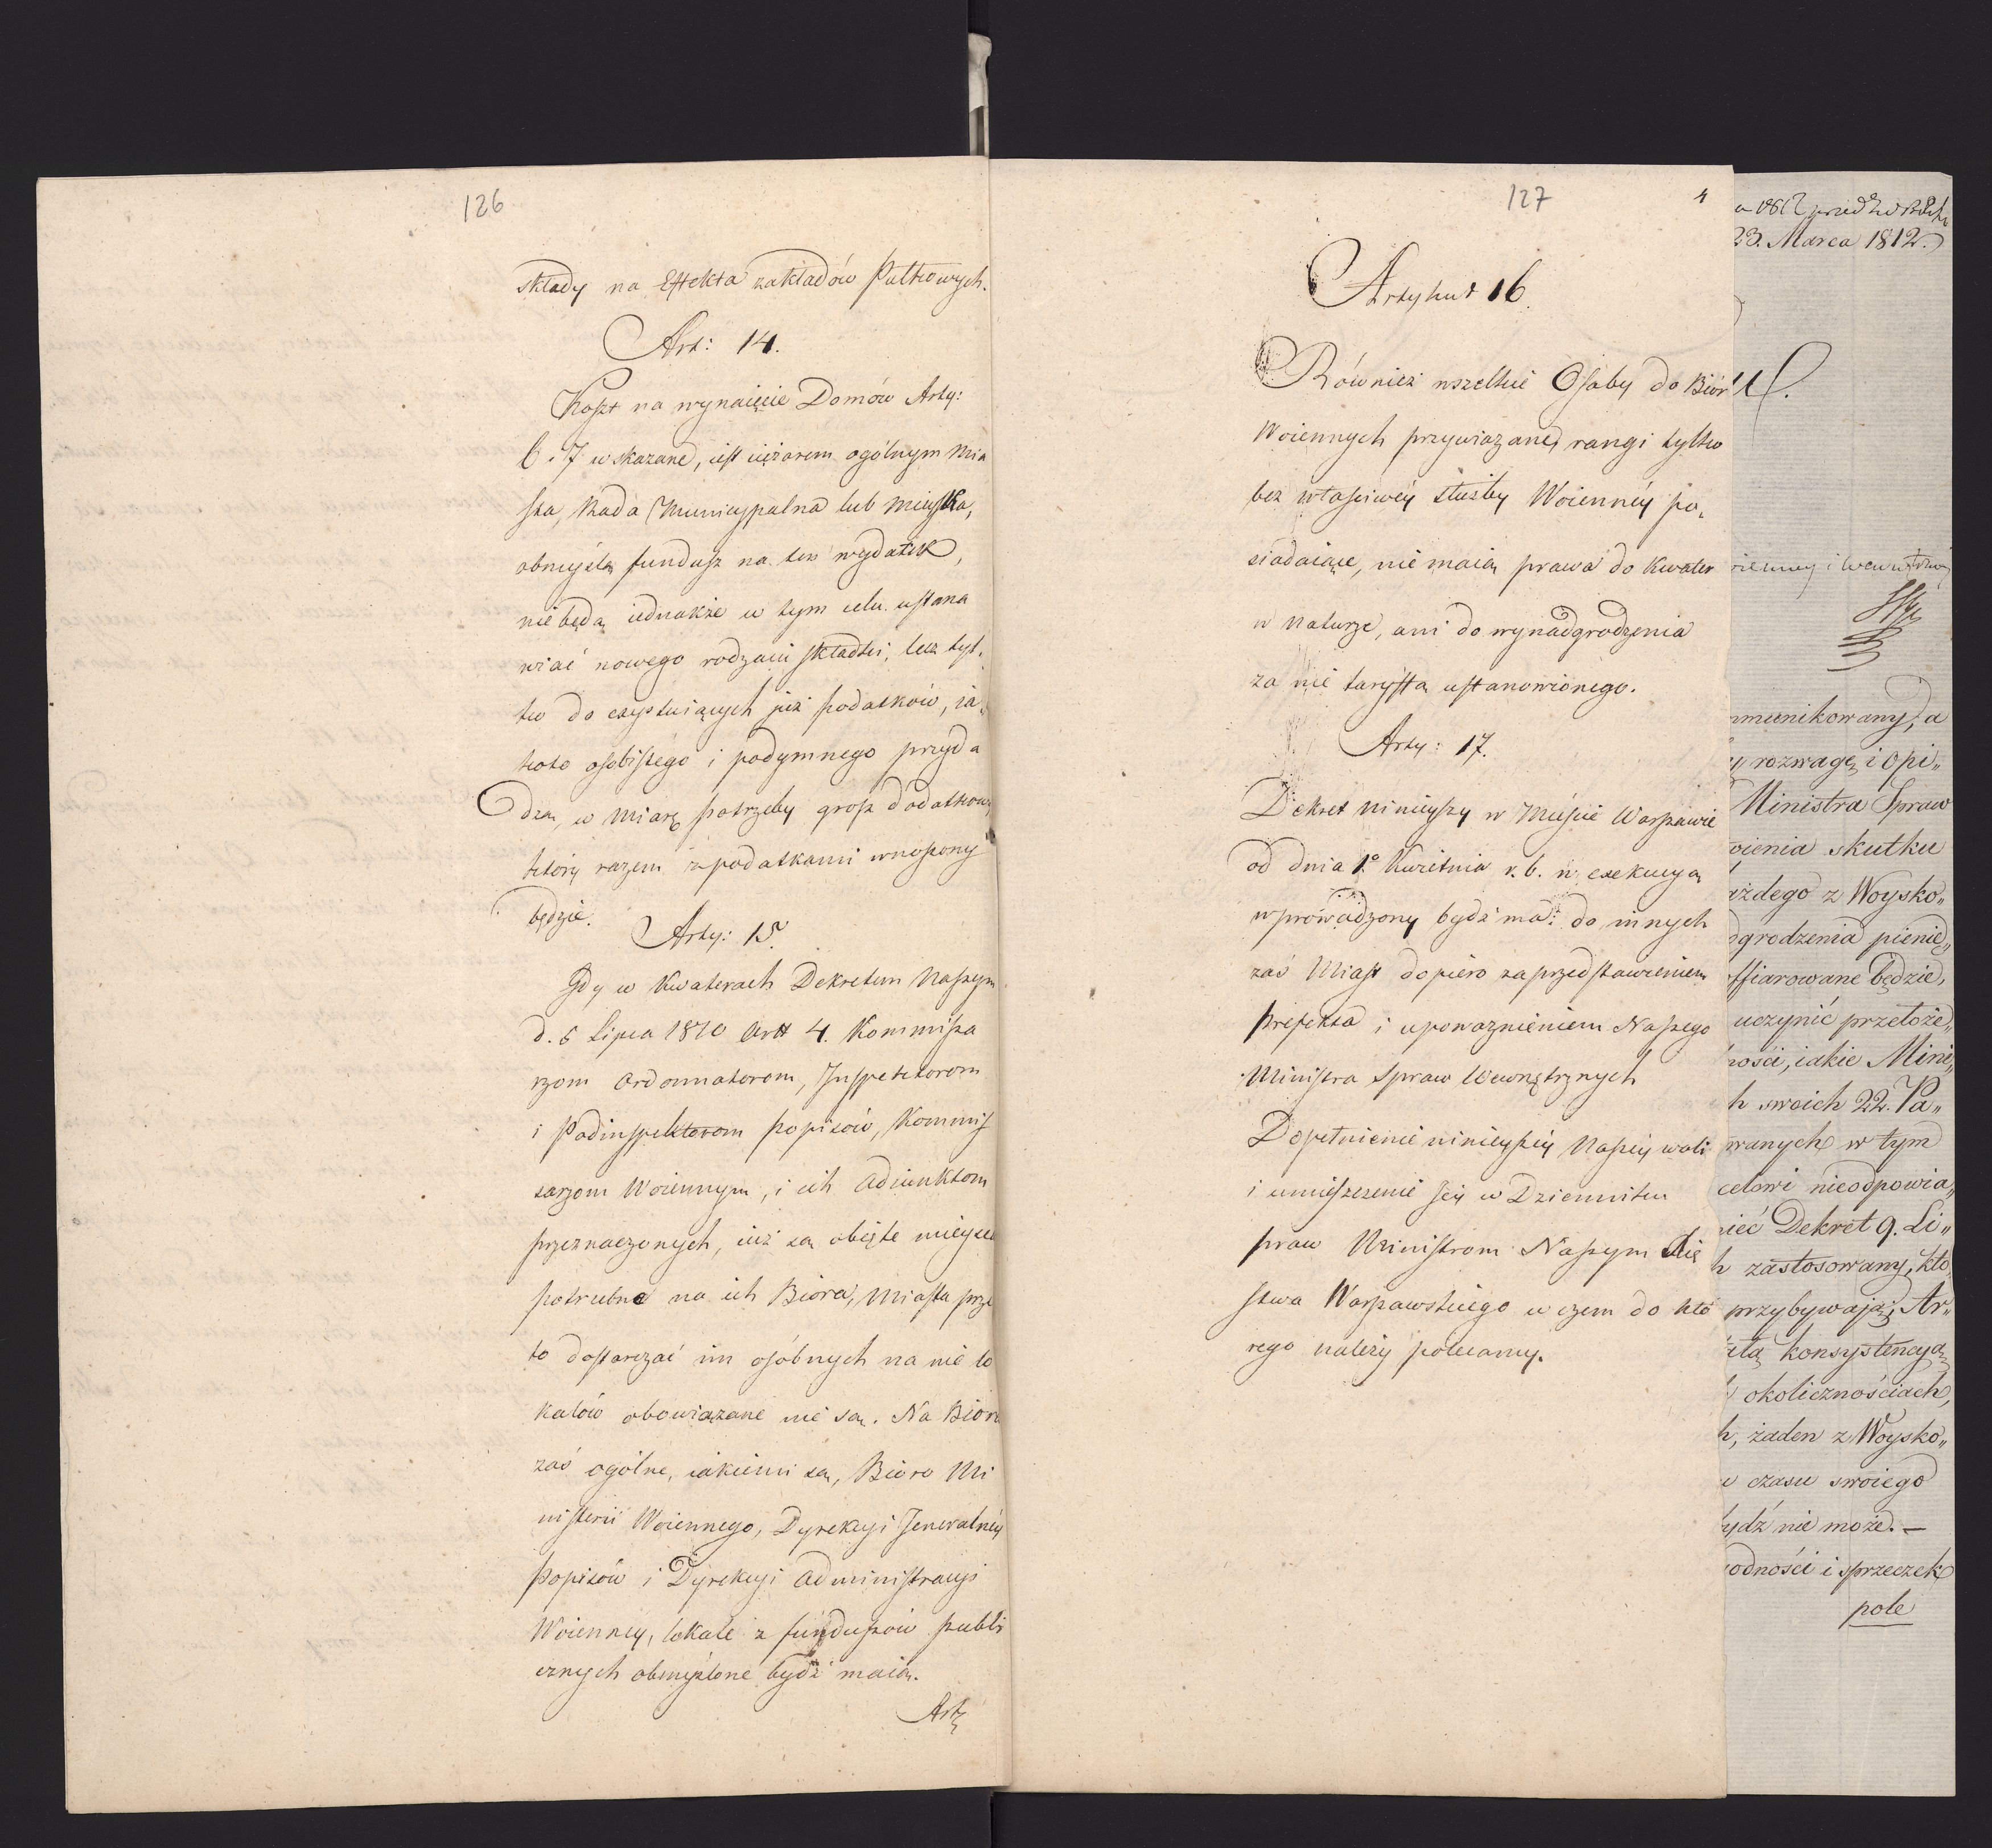 126
składy na Effekta zakładów Pułkowych.
Art: 14.
Koszt na wynaięcie Domów Arty:
6. 7 wskazane, iest ciężarem ogólnym Mia
sta, Rada Municypalna lub Mieyska,
obmyślą fundusz na ten wydatek,
nie będą iednakże w tym celu ustana
wiać nowego rodzaiu składki, lecz tyl-
ko do exystuiących już podatków, ia-
koto osobistego i podymnego przyda
dzą, w miarę potrzeby grosz dodatkowy
który razem z podatkami wnoszony
będzie.
Arty: 15.
Gdy w Kwaterach Dekretem Naszym
d. 6 Lipca 1810 Artt 4. Kommissa
rzom Ordonnatorom, Inspektorom
i Podinspektorom popisów, Kommis
sarzom Woiennym, i ich Adiunktom
przeznaczonych, iuż są obięte mieysca
potrzebne na ich Biora, Miasta prze
to dostarczać im osóbnych na nie lo
kalów obowiązane nie są. Na Biora
zaś ogólne, iakiemi są, Bióro Mi
nisterii Woiennego, Dyrekcyi Jeneralnéy
popisów i Dyrekcyi Administracyi
Woienney, lokale z funduszów publi
cznych obmyślone bydź maią.
Arty
127
4
Artykuł 16.
Również wszelkie Osoby do Biór
Woiennych przywiązane, rangi tylko
bez właściwéy służby Woiennéy po-
siadaiące, nie maią prawa do Kwater
w Naturze, ani do wynadgrodzenia
za nie taryffą ustanowionego.
Arty: 17.
Dekret ninieyszy w Mieście Warszawie
od dnia 1º Kwietnia r. b. w exekucyą
wprowadzony bydź ma: do innych
zaś Miast dopiero za przedstawieniem
Prefekta i upoważnieniem Naszego
Ministra Spraw Wewnętrznych
Dopełnienie ninieyszéy Naszéy woli
i umieszczenie Jéy w Dzienniku
praw Ministrom Naszym Xię
stwa Warszawskiego w czem do któ
rego należy polecamy.
23. Marca 1812.
mmunikowany, a
rozwagę i opi„
Ministra Spraw
wienia skutku
ażdego z Woysko„
dgrodzenia pienię„
ffiarowane będzie,
uczynić przełoże„
ności, iakie Mini„
h swoich 22. Pa„
wanych w tym
celowi nieodpowia„
nieć Dekret 9. Li„
h zastosowany, kto„
przybywaią, Ar„
tą konsystencyą
okolicznościach,
h, żaden z Woysko„
czasu swoiego
ydź nie może. —
odności i sprzeczek
pole